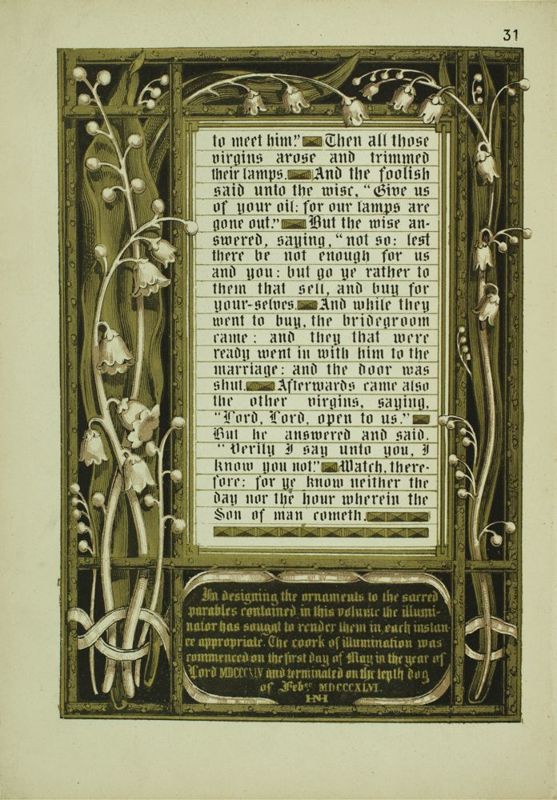 31
to meet him." Then all those
virgins arose and trimmed
their lamps. And the foolish
said unto the wise, "Give us
of your oil: for our lamps are
gone out." But the wise an-
swered, saying, "not so: lest
there be not enough for us
and you: but go ye rather to
them that sell, and buy for
your-selves. And while they
went to buy, the bridegroom
came: and they that were
ready went in with him to the
marriage: and the door was
shut. Afterwards came also
the other virgins, saying,
"Lord, Lord, open to us."
But he answered and said,
"Verily I say unto you, I
know you not!" Watch, there-
fore: for ye know neither the
day nor the hour wherein the
Son of man cometh.
In designing the ornaments to the sacred
parables contained in this volume the illumi-
nator has sought to render them in each instan-
ce appropriate. The work of illumination was
commenced on the first day of May in the year of
Lord and terminated on the
of Feby. MDCCCXLVI.